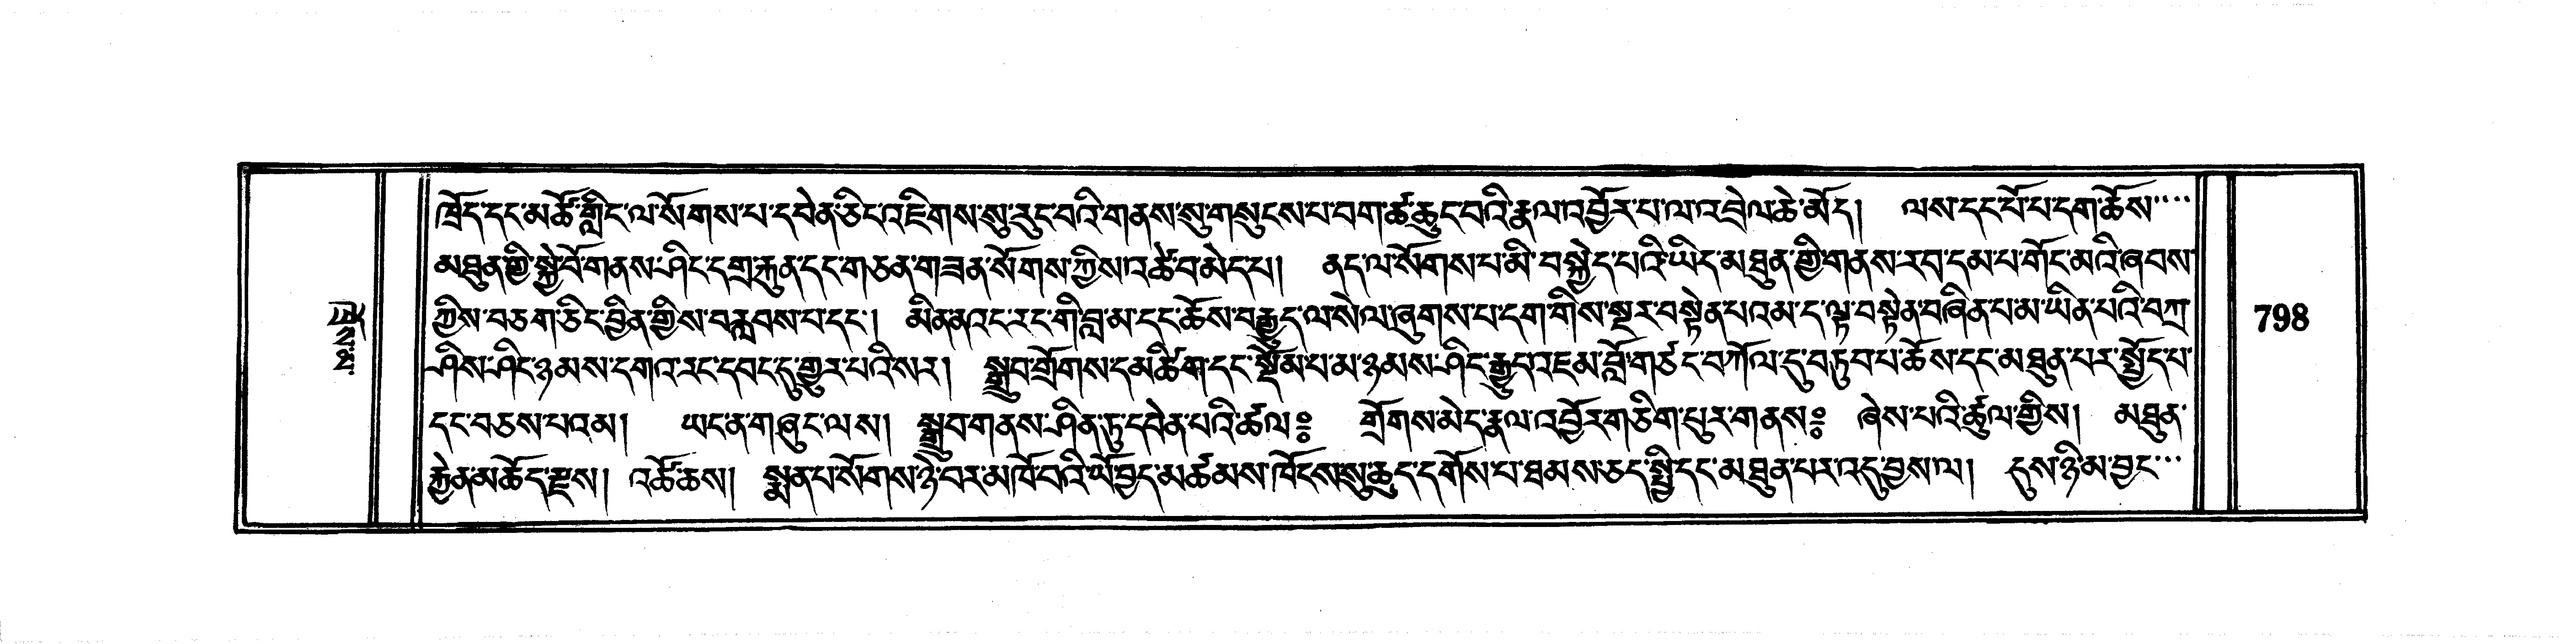 ཁྲོད་དང་མཚོ་གླིང་ལ་སོགས་པ་དབེན་ཅིང་འཇིགས་སུ་རུང་བའི་གནས་སུ་གསུངས་པ་བག་ཚ་ཆུང་བའི་རྣལ་འབྱོར་པ་ལ་འབྲེལ་ཆེ་མོད། ལས་དང་པོ་པ་དག་ཆོས་
མཐུན་གྱི་སྐྱེ་བོ་གནས་ཤིང་དགྲ་རྐུན་དང་གཅན་གཟན་སོགས་ཀྱིས་འཚེ་བ་མེད་པ། ནད་ལ་སོགས་པ་མི་བསྐྱེད་པའི་ཡིད་མཐུན་གྱི་གནས་རབ་དམ་པ་གོང་མའི་ཞབས་
ཀྱིས་བཅག་ཅིང་བྱིན་གྱིས་བརླབས་པ་དང་། མིན་ནའང་རང་གི་བླ་མ་དང་ཆོས་བརྒྱུད་ལ་སེལ་ཞུགས་པ་དག་གིས་སྔར་བསྟེན་པའམ་ད་ལྟ་བསྟེན་བཞིན་པ་མ་ཡིན་པའི་བཀྲ་
ཤིས་ཤིང་ཉམས་དགའ་རང་དབང་དུ་གྱུར་པའི་སར། སྒྲུབ་གྲོགས་དམ་ཚིག་དང་སྡོམ་པ་མ་ཉམས་ཤིང་རྒྱུད་འཇམ་བློ་གཙང་བཀོལ་དུ་བཏུབ་པ་ཆོས་དང་མཐུན་པར་སྤྱོད་པ་
དང་བཅས་པའམ། ཡང་ན་གཞུང་ལས། སྒྲུབ་གནས་ཤིན་ཏུ་དབེན་པའི་ཚལ༔ གྲོགས་མེད་རྣལ་འབྱོར་གཅིག་པུར་གནས༔ ཞེས་པའི་ཚུལ་གྱིས། མཐུན་
རྐྱེན་མཆོད་རྫས། འཚོ་ཆས། སྨན་པ་སོགས་ཉེ་བར་མཁོ་བའི་ཡོ་བྱད་མཚམས་ཁོངས་སུ་ཆུད་དགོས་པ་ཐམས་ཅད་སྤྱི་དང་མཐུན་པར་འདུ་བྱས་ལ། དུས་ཉི་མ་བྱང་
798